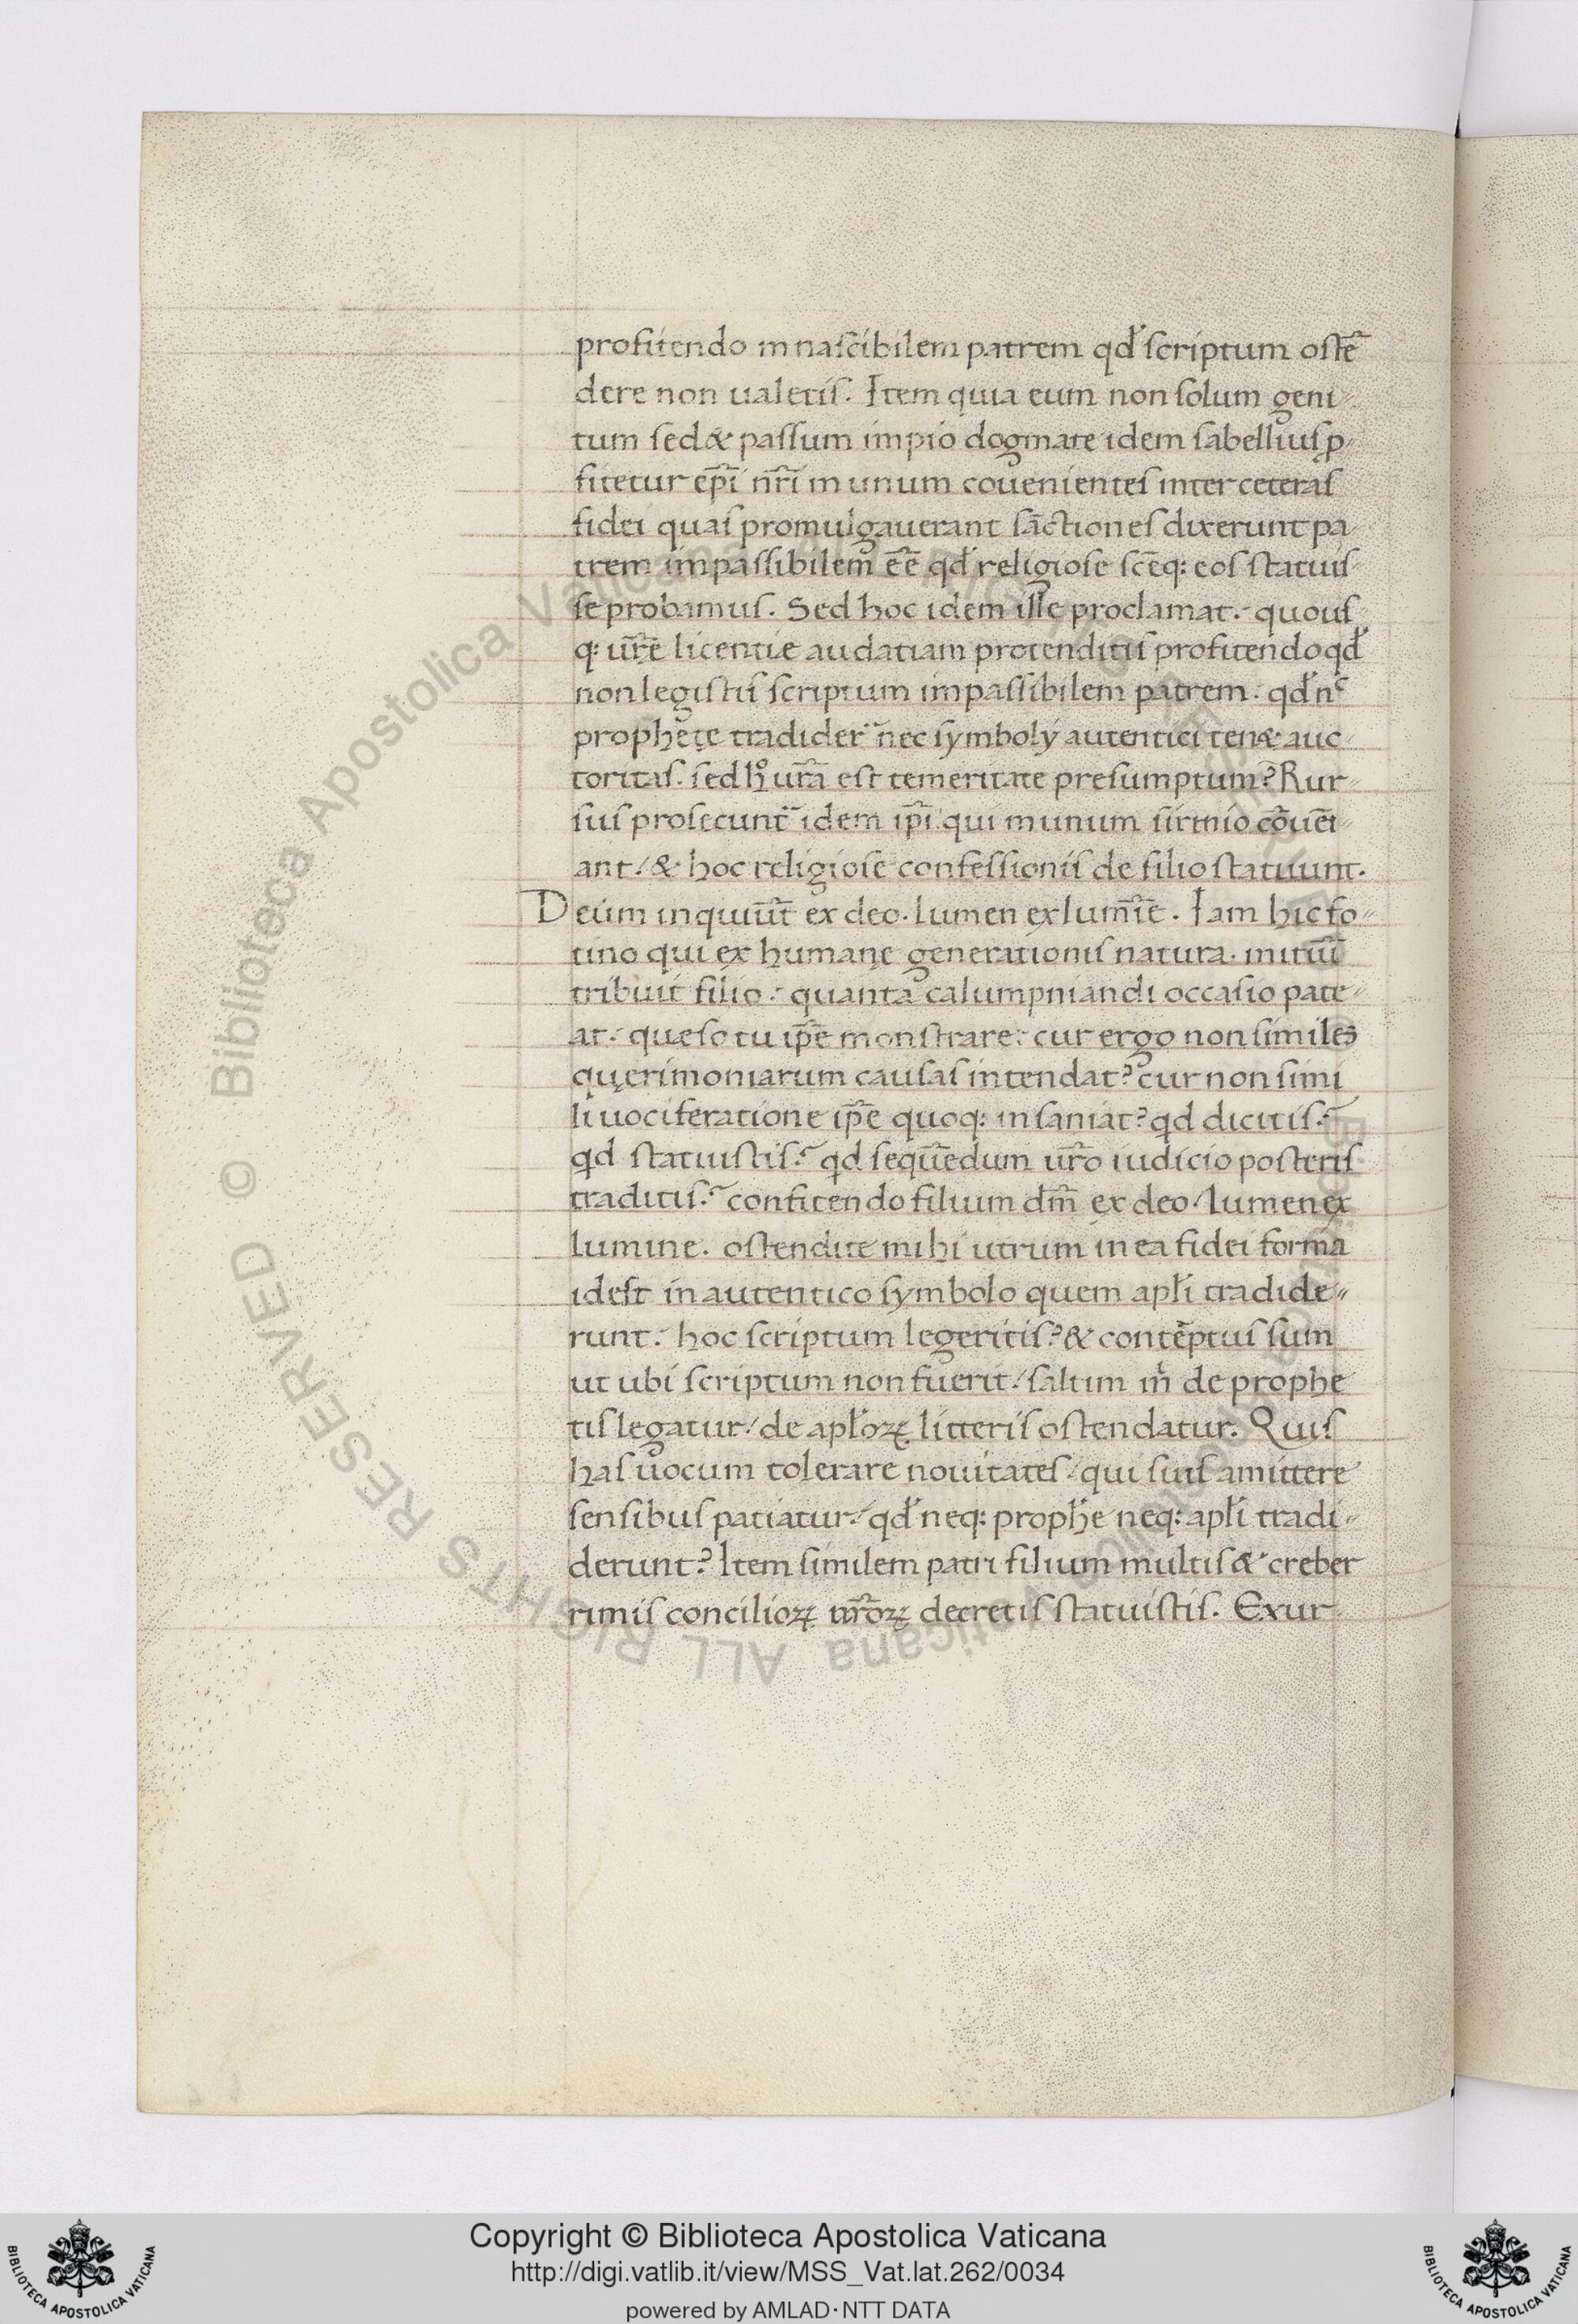 profitendo innascibilem patrem qđ scriptum ostē
dere non ualetis. Item quia eum non solum geni-
tum sed & passum impio dogmate idem sabellius ꝓ-
fitetur ep̄i nr̄i in unum cōuenientes inter ceteras
fidei quas promulgauerant sāctiones dixerunt pa-
trem impassibilem eē̄ qđ religiose scēq: eos statuis-
se probamus. Sed hoc idem ille proclamat. quous
q: ur̄e licentie audatiam protenditis profitendo qđ
non legistis scriptum impassibilem patrem. qđ nᶜ
prophetę tradider̄ nec symboly autentici tenæ auc-
toritas. sed hͦ ur̄a est temeritate presumptum? Rur-
sus prosecunt̄ idem ip̄i qui in unum sirmio cōuēi-
ant / & hoc religiose confessionis de filio statuunt.
Deum inquiūt ex deo. lumen ex lumīe. Iam hic fo-
tino qui ex humanę generationis natura. initiū
tribuit filio. quanta calumpniandi occasio pate-
at. queso tu ip̄e monstrare. cur ergo non similes
querimoniarum causas intendat? cur non simi
li uociferatione ip̄e quoq: insaniat? qd dicitis?
qd statuistis? qd sequēdum ur̄o iudicio posteris
traditis? confitendo filium dm̄ ex deo / lumen ex
lumine. ostendite mihi utrum in ea fidei forma
idest in autentico symbolo quem apl̄i tradide-
runt. hoc scriptum legeritis? & contēptus sum
ut ubi scriptum non fuerit / saltim m̄ de prophe
tis legatur / de apl̄oꝝ litteris ostendatur. Quis
has uocum tolerare nouitates / qui suis amittere
sensibus patiatur / qđ neq: proph̄e neq: apl̄i tradi-
derunt? Item similem patri filium multis & creber
rimis concilioꝝ ur̄oꝝ decretis statuistis. Exur
© Biblioteca Apostolica Vaticana ALL RIGHTS RESERVED
Copyright © Biblioteca Apostolica Vaticana
http://digi.vatlib.it/view/MSS_Vat.lat.262/0034
powered by AMLAD·NTT DATA
BIBLIOTECA APOSTOLICA VATICANA
BIBLIOTECA APOSTOLICA VATICANA